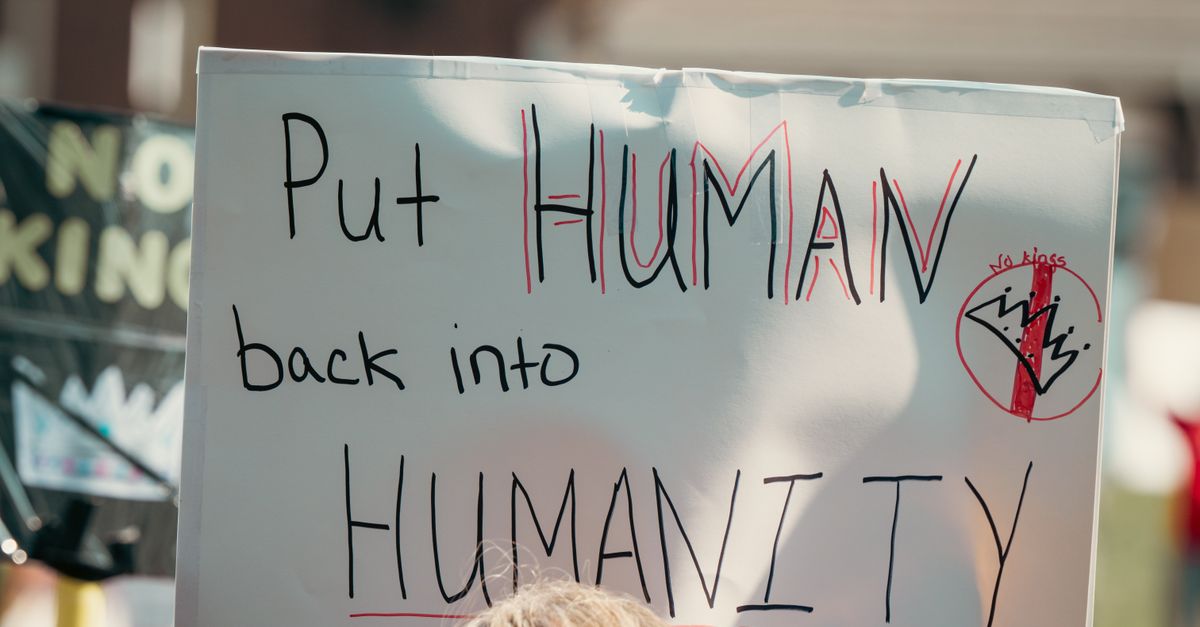 Put HUMAN
back into
HUMANITY
No kings
NO
KING